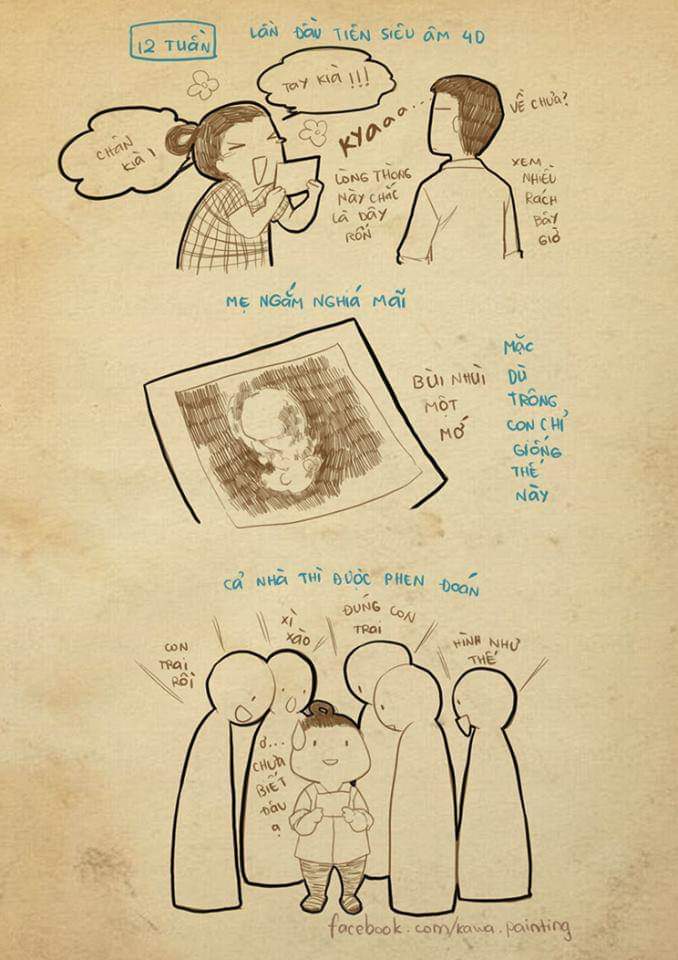 12 TUẦN
LẦN ĐẦU TIÊN SIÊU ÂM 4D
CHÂN
KIÀ!
TAY KIÀ!!!
KYAaa...
LÒNG THÒNG
NÀY CHẮC
LÀ DÂY
RỐN
VỀ CHƯA?
XEM
NHIỀU
RÁCH
BÂY
GIỜ
MẸ NGẮM NGHIÁ MÃI
BÙI NHÙI
MỘT
MỚ
MẶC
DÙ
TRÔNG
CON CHỈ
GIỐNG
THẾ
NÀY
CẢ NHÀ THÌ ĐƯỢC PHEN ĐOÁN
CON
TRAI
RỒI
XÌ
XÀO
ĐÚNG CON
TRAI
HÌNH NHƯ
THẾ
Ơ...
CHƯA
BIẾT
ĐÂU
Ạ
facebook.com/kawa.painting